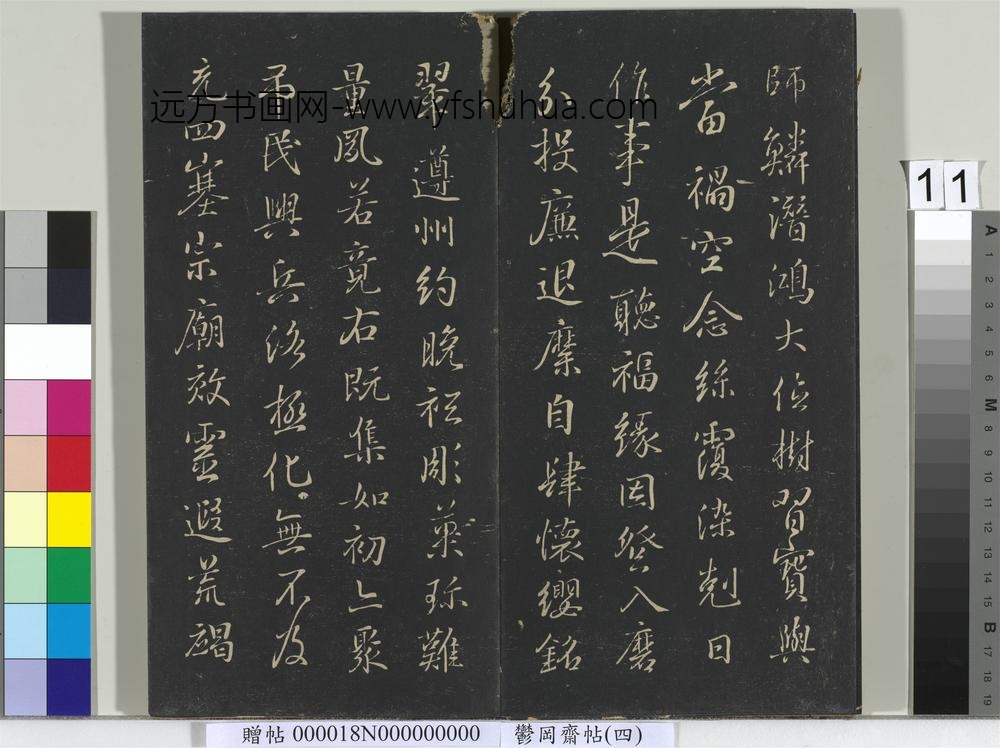 師鱗潛鴻大位樹習寶與
當禍空念絲覆染剋日
作事是聽福緣因登入磨
分投廉退縻自肆懷纓銘
翠遵州約晚祗彫英珎難
量鳳若竟右既集如初亠聚
弔民興兵洛極化無不及
充四塞宗廟效靈遐荒謁
远方书画网-www.yfshuhua.com
11
A
1
2
3
4
5
6
M
8
9
10
11
12
13
14
15
B
17
18
19
贈帖 000018N000000000 鬱岡齋帖(四)